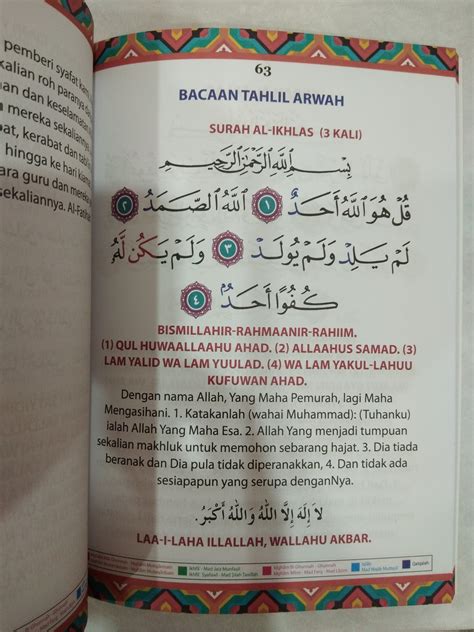 pemberi syafat kam
kalian roh paranya da
an dan keselamatan
mereka sekaliann
at, kerabat dan tab
hingga ke hari kiam
ara guru dan merek
sekaliannya. Al-Fatiha
63
BACAAN TAHLIL ARWAH
SURAH AL-IKHLAS (3 KALI)
بِسْمِ اللَّهِ الرَّحْمَٰنِ الرَّحِيمِ
قُلْ هُوَ اللَّهُ أَحَدٌ ١ اللَّهُ الصَّمَدُ ٢
لَمْ يَلِدْ وَلَمْ يُولَدْ ٣ وَلَمْ يَكُن لَّهُۥ
كُفُوًا أَحَدٌۢ ٤
BISMILLAHIR-RAHMAANIR-RAHIIM.
(1) QUL HUWAALLAAHU AHAD. (2) ALLAAHUS SAMAD. (3)
LAM YALID WA LAM YUULAD. (4) WA LAM YAKUL-LAHUU
KUFUWAN AHAD.
Dengan nama Allah, Yang Maha Pemurah, lagi Maha
Mengasihani. 1. Katakanlah (wahai Muhammad): (Tuhanku)
ialah Allah Yang Maha Esa. 2. Allah Yang menjadi tumpuan
sekalian makhluk untuk memohon sebarang hajat. 3. Dia tiada
beranak dan Dia pula tidak diperanakkan, 4. Dan tidak ada
sesiapapun yang serupa denganNya.
لَا إِلَهَ إِلَّا اللَّهُ وَاللَّهُ أَكْبَرُ.
LAA-I-LAHA ILLALLAH, WALLAHU AKBAR.